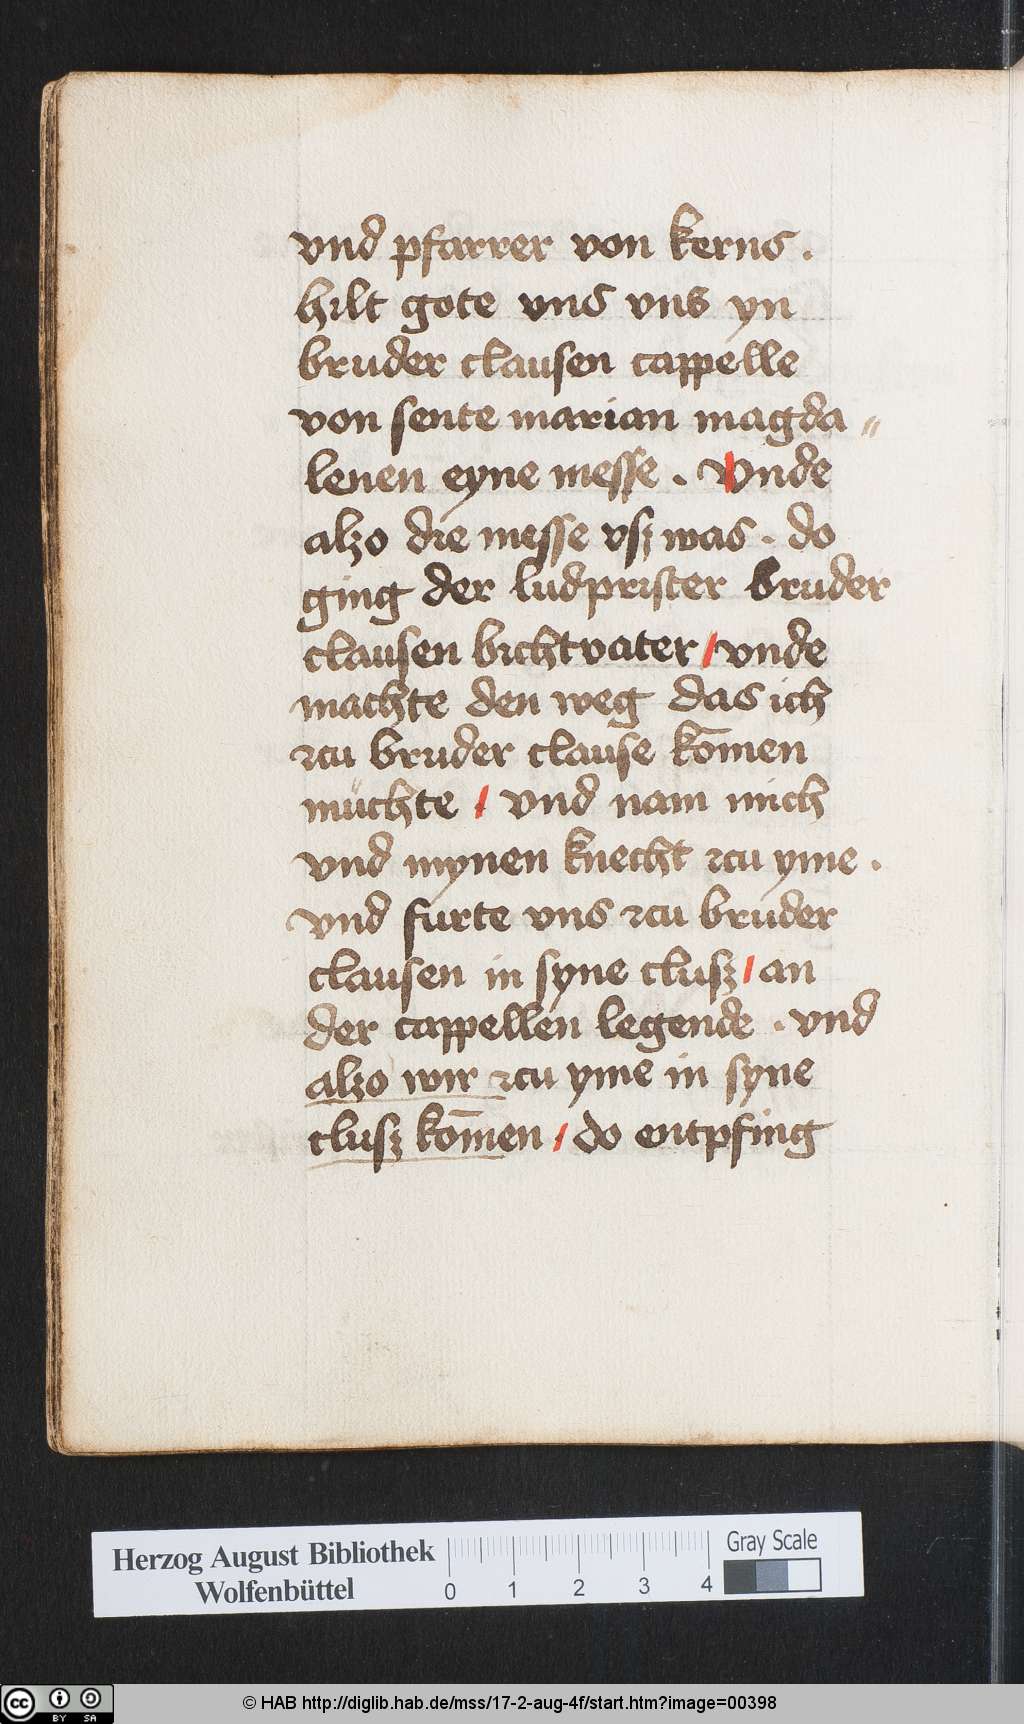 vnd pfarrer von kerns .
hilt gote vnd vns yn
bruder clausen cappelle
von sente marian magda〃
lenen eyne messe . Vnde
alzo die messe vsz was . do
ging der ludprister bruder
clausen bichtvater / vnde
machte den weg das ich
zcu bruder clause kōmen
müchte / vnd nam mich
vnd mynen knecht zcu yme .
vnd furte vns zcu bruder
clausen in syne clusz / an
der cappellen legende . vnd
alzo wir zcu yme in syne
clusz kōmen / do entpfing
Herzog August Bibliothek
Wolfenbüttel
0 1 2 3 4
Gray Scale
cc BY SA
© HAB http://diglib.hab.de/mss/17-2-aug-4f/start.htm?image=00398